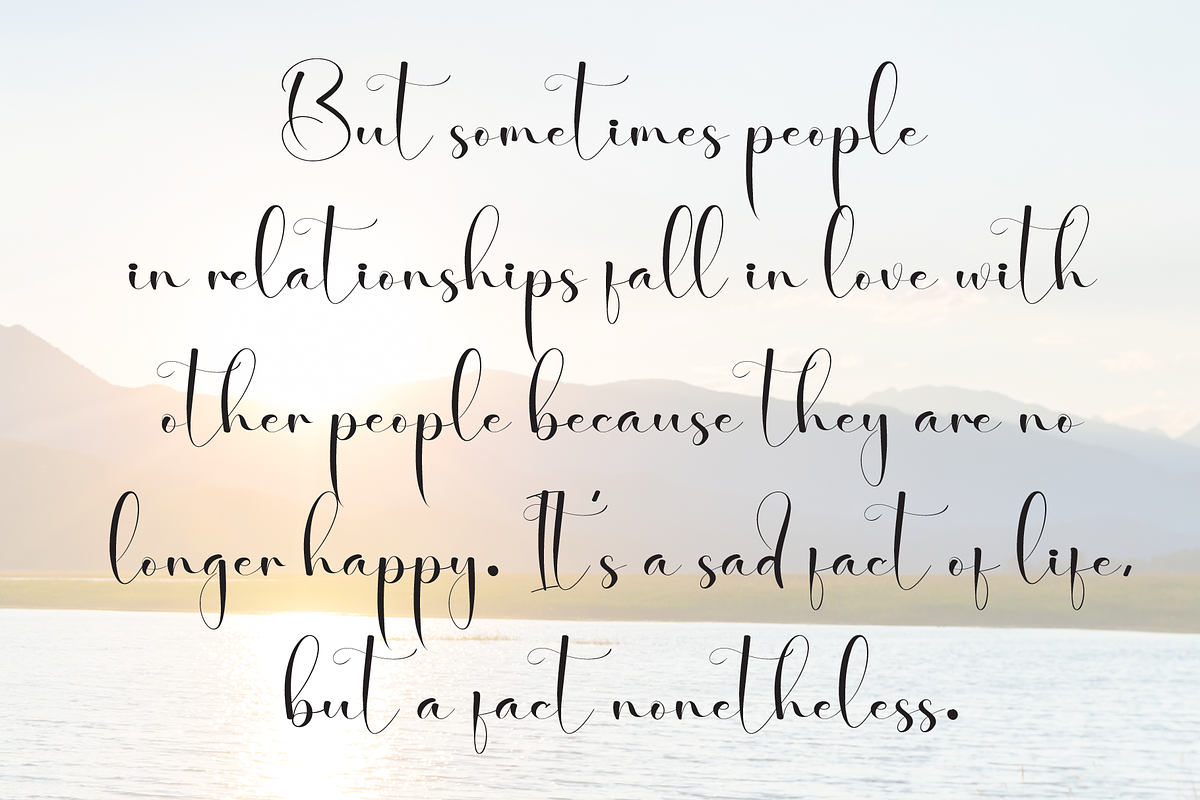 But sometimes people
in relationships fall in love with
other people because they are no
longer happy. It's a sad fact of life,
but a fact nonetheless.